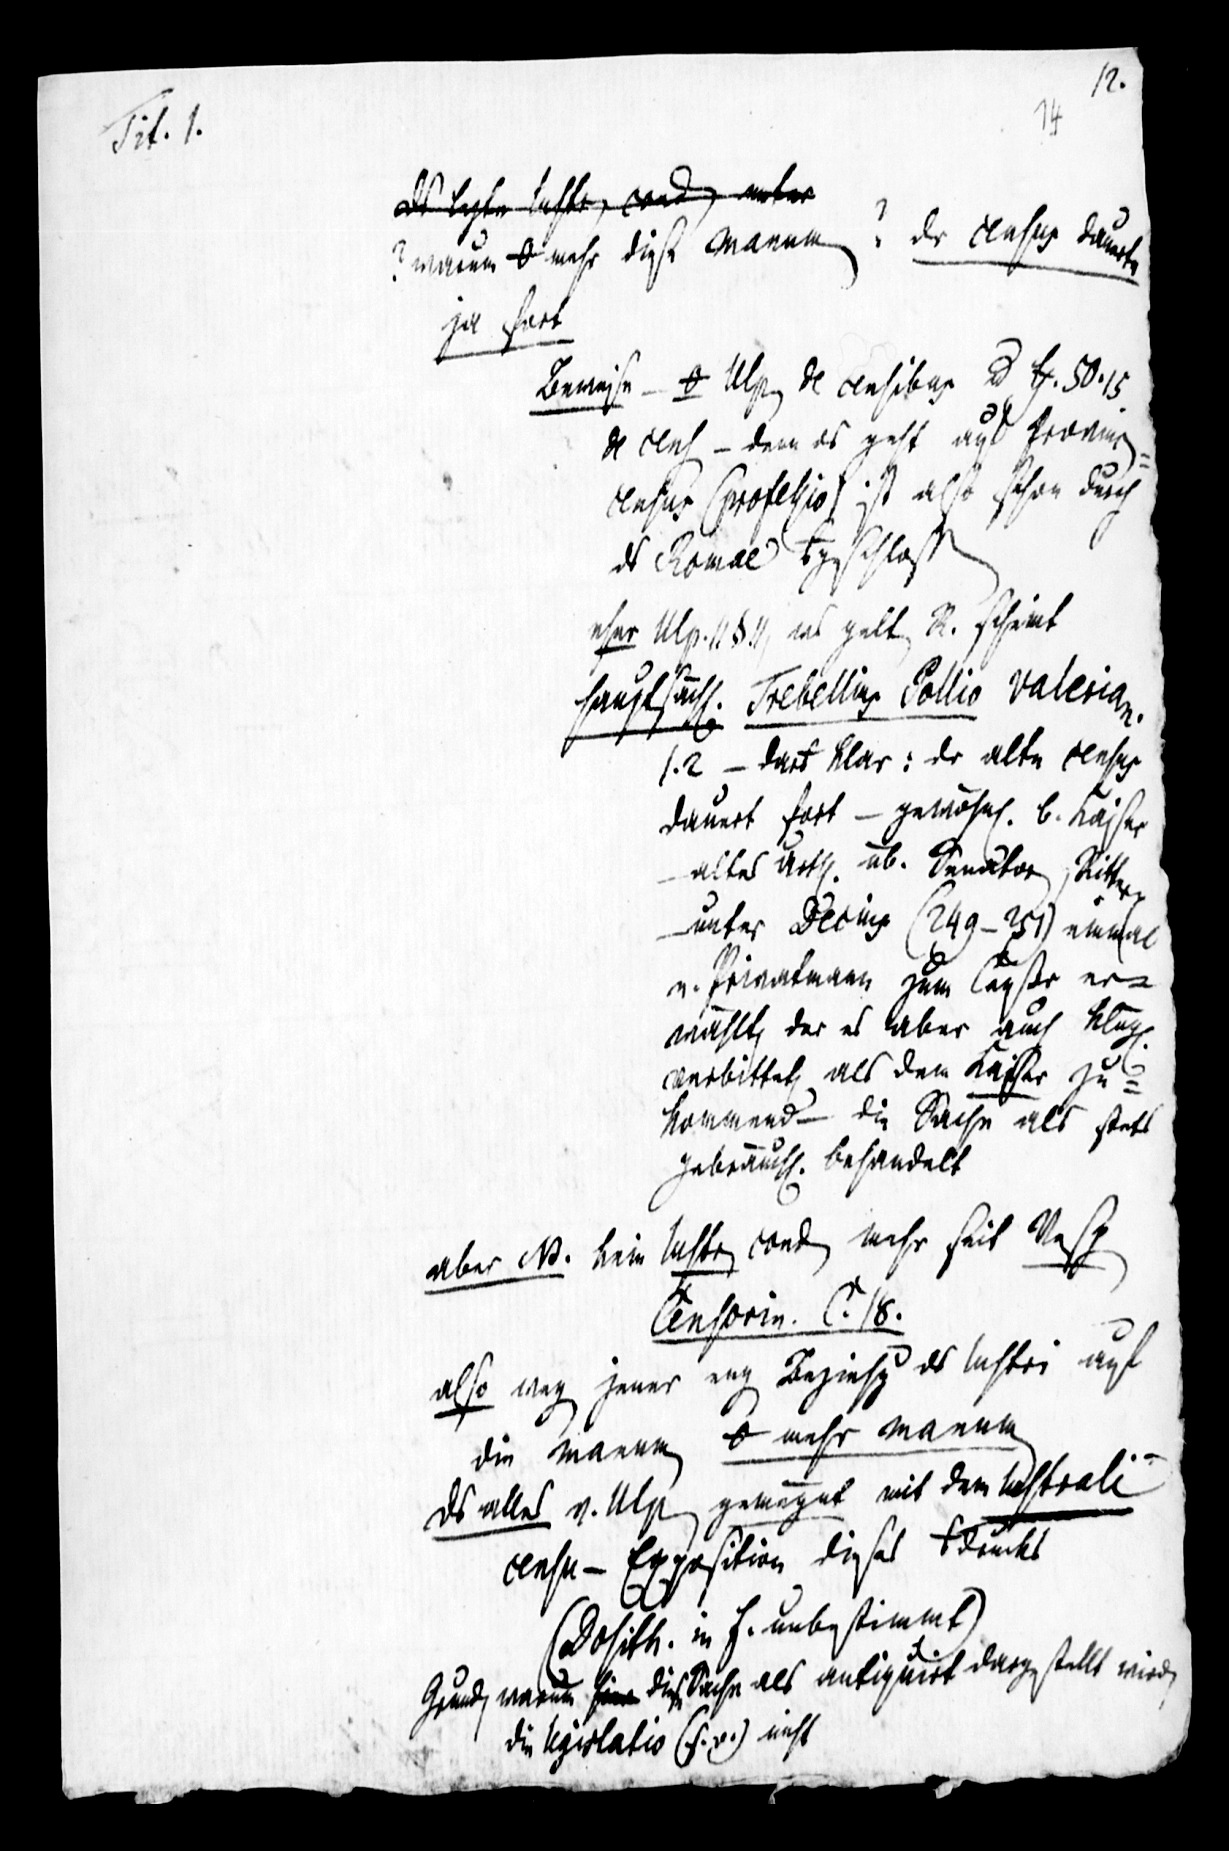 12.
14
Tit. 1.
ds letzte lustr. cond. unter
? warum 0 mehr diese manum ? dr census dauerte
ja fort
Beweise – 0 Ulp. de censibus ad tt. 50.15
de cens – denn es geht auf Provinz=
census (professio) ist also schon durch
ds Romae geschlossen
eher Ulp. 11 § 11, ws gelt. R. scheint
hauptsächl. Trebellius Pollio Valerian.
1.2 – dort klar: dr alte census
dauert fort – gewöhnl. b. Kaiser
– altes Urth. üb. Senator, Ritter
– unter Decius (249–251) einmal
e. Privatmann zum Censor er=
wählt, der es aber auch klugl.
verbittet, als dem Kaiser zu=
kommend – die Sache als stets
gebräuchl. behandelt
aber NB. kein lustr. cond. mehr seit Vesp.
Censorin. C. 18.
also weg. jener eng. Beziehg ds lustri auf
die manum. 0 mehr manum.
ds alles v. Ulp. gemeynt mit dem lustrali=
censu – Exposition dieses drucks
(Dosith. in f. unbestimmt)
Grund, warum diese Sache als antiquirt dargestellt wird,
die legislatio (s. v.) nicht